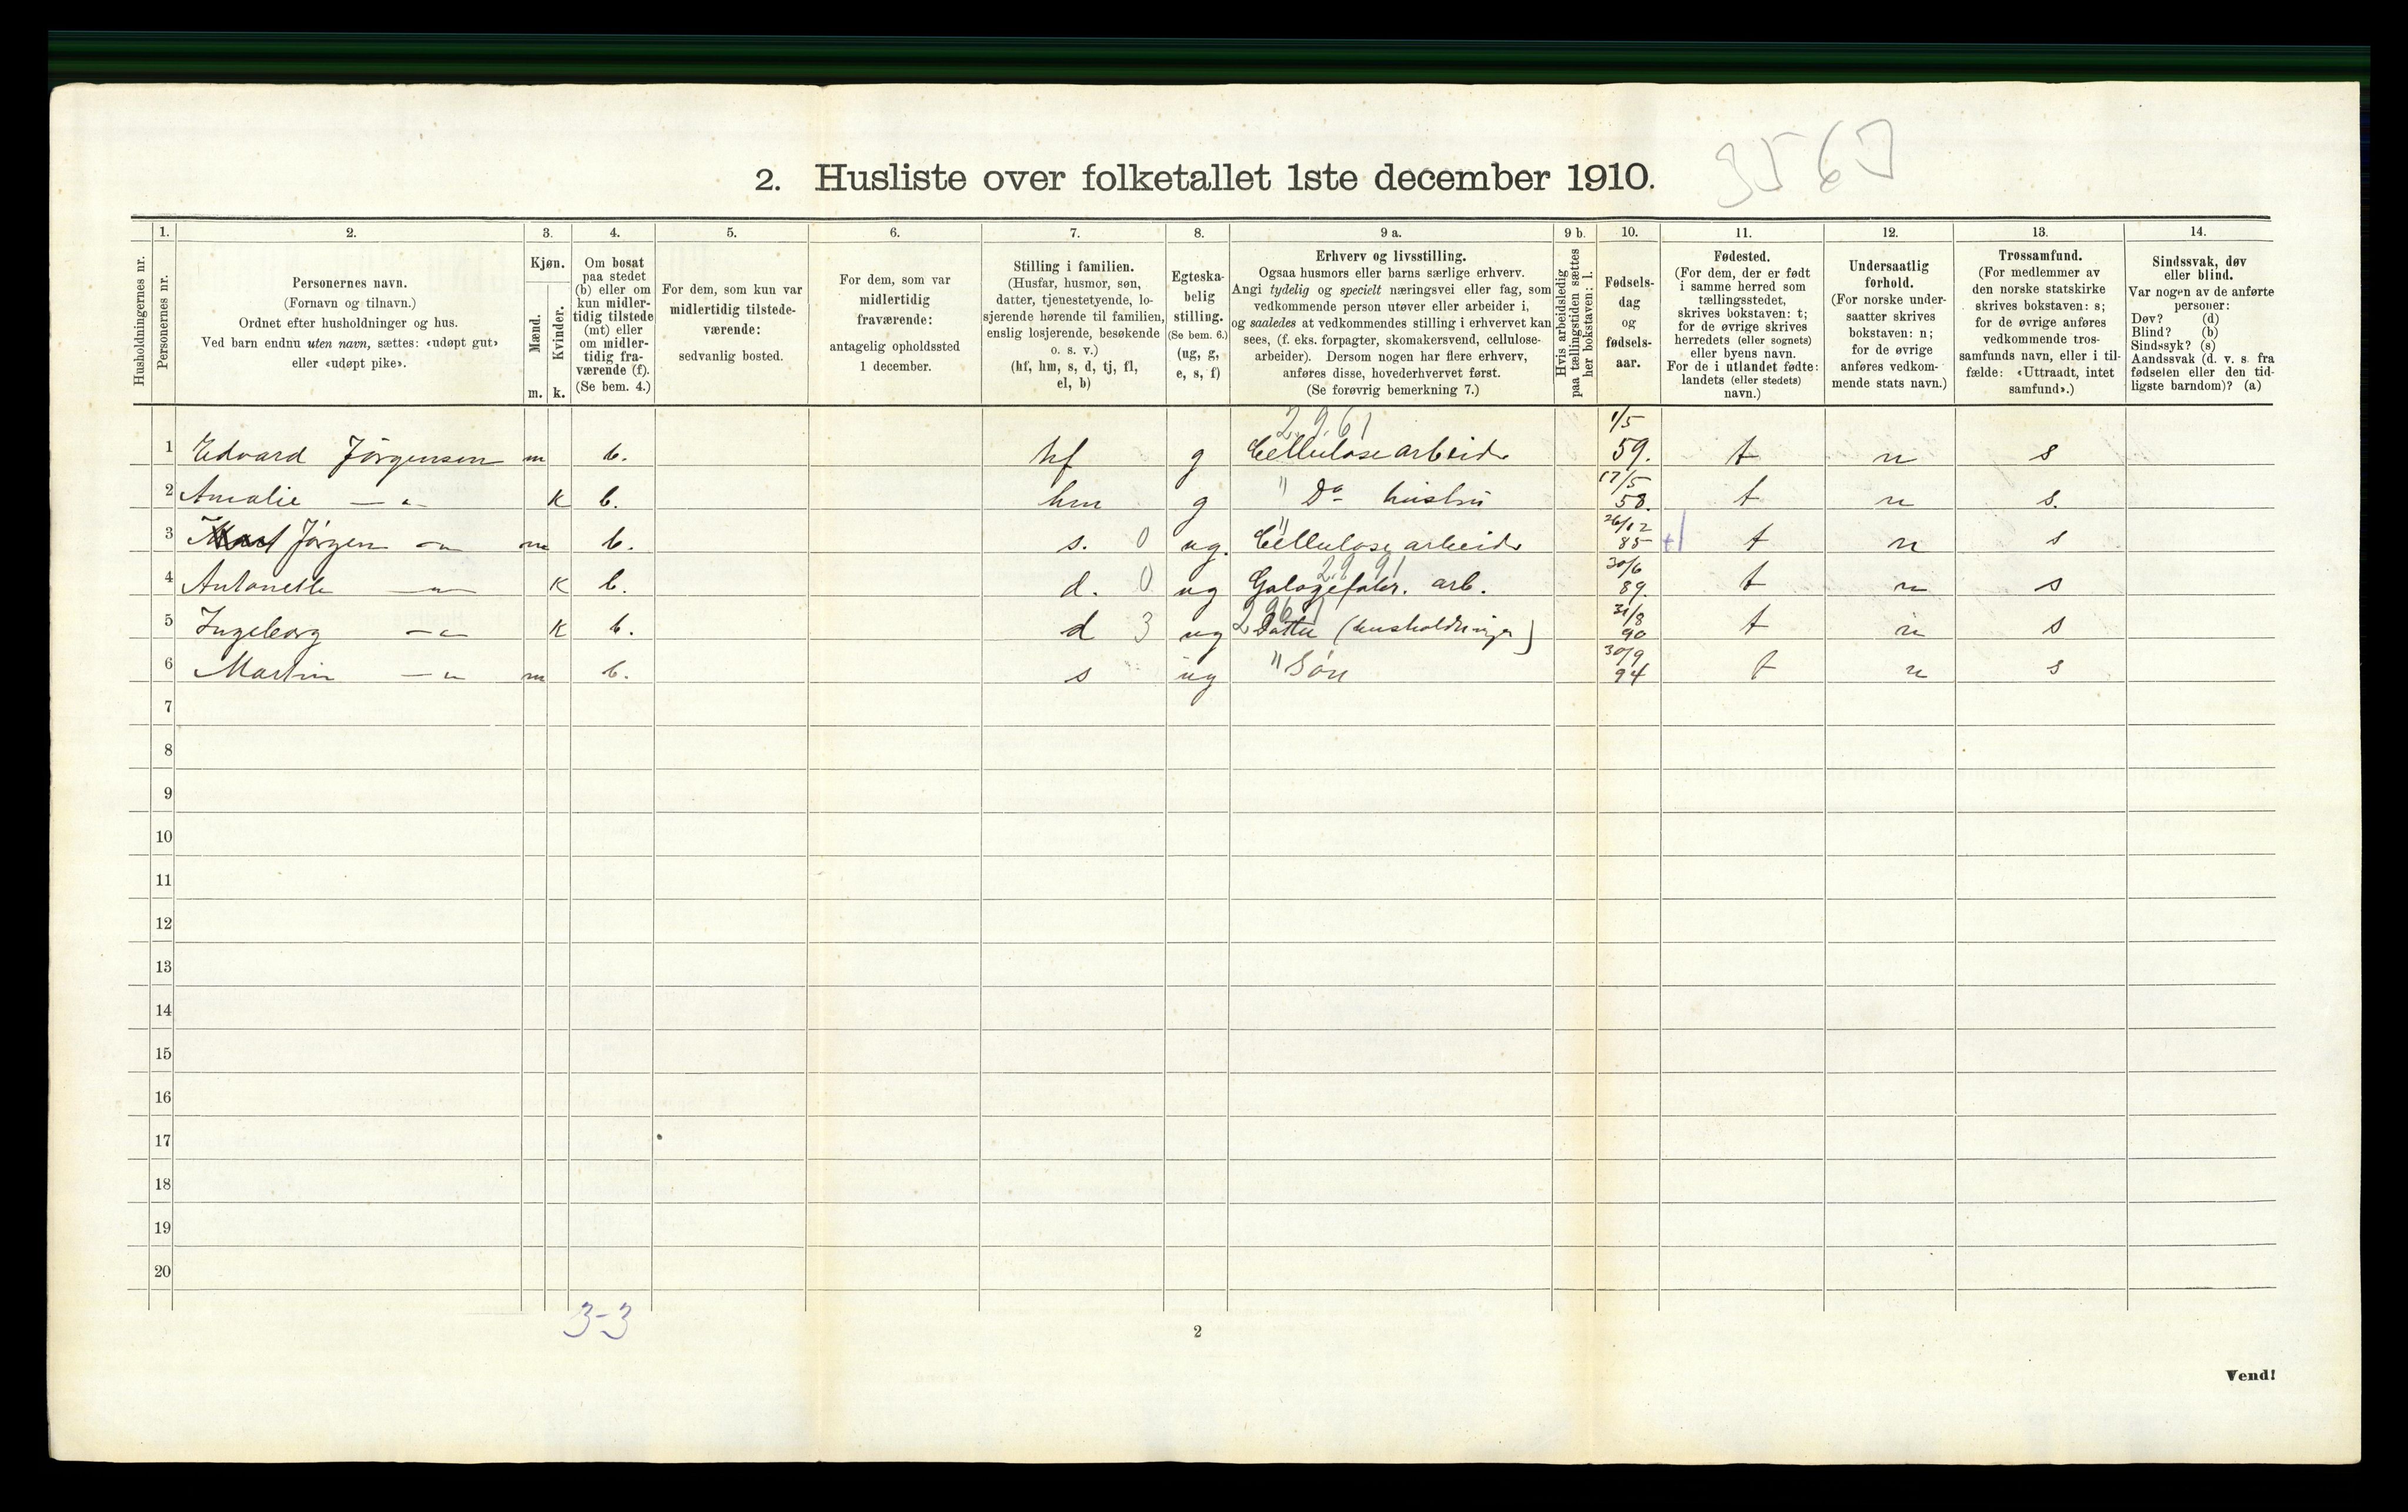 3567
2. Husliste over folketallet 1ste december 1910.
Husholdningernes nr.
1. Personernes nr.
2. Personernes navn.
(Fornavn og tilnavn.)
Ordnet efter husholdninger og hus.
Ved barn endnu uten navn, sættes: «udøpt gut»
eller «udøpt pike».
3. Kjøn.
Mænd. m.
Kvinder. k.
4. Om bosat
paa stedet
(b) eller om
kun midler-
tidig tilstede
(mt) eller
om midler-
tidig fra-
værende (f).
(Se bem. 4.)
5. For dem, som kun var
midlertidig tilstede-
værende:
sedvanlig bosted.
6. For dem, som var
midlertidig
fraværende:
antagelig opholdssted
1 december.
7. Stilling i familien.
(Husfar, husmor, søn,
datter, tjenestetyende, lo-
sjerende hørende til familien,
enslig losjerende, besøkende
o. s. v.)
(hf, hm, s, d, tj, fl,
el, b)
8. Egteska-
belig
stilling.
(Se bem. 6.)
(ug, g,
e, s, f)
9 a. Erhverv og livsstilling.
Ogsaa husmors eller barns særlige erhverv.
Angi tydelig og specielt næringsvei eller fag, som
vedkommende person utøver eller arbeider i,
og saaledes at vedkommendes stilling i erhvervet kan
sees, (f. eks. forpagter, skomakersvend, cellulose-
arbeider). Dersom nogen har flere erhverv,
anføres disse, hovederhvervet først.
(Se forøvrig bemerkning 7.)
9 b. Hvis arbeidsledig
paa tællingstiden sættes
her bokstaven: l.
10. Fødsels-
dag
og
fødsels-
aar.
11. Fødested.
(For dem, der er født
i samme herred som
tællingsstedet,
skrives bokstaven: t;
for de øvrige skrives
herredets (eller sognets)
eller byens navn.
For de i utlandet fødte:
landets (eller stedets)
navn.)
12. Undersaatlig
forhold.
(For norske under-
saatter skrives
bokstaven: n;
for de øvrige
anføres vedkom-
mende stats navn.)
13. Trossamfund.
(For medlemmer av
den norske statskirke
skrives bokstaven: s;
for de øvrige anføres
vedkommende tros-
samfunds navn, eller i til-
fælde: «Uttraadt, intet
samfund».)
14. Sindssvak, døv
eller blind.
Var nogen av de anførte
personer:
Døv? (d)
Blind? (b)
Sindssyk? (s)
Aandssvak (d. v. s. fra
fødselen eller den tid-
ligste barndom)? (a)
2961
1 Edvard Jörgensen m b. hf g Cellulosearbeider 1/5 59. t n s
2 Amalie — „ — k b. hm g " Do hustru 17/5 58. t n s.
3 Jörgen — „ — m b. s. 0 ug. " Cellulosearbeider 26/12 85 t n s
2991
4 Antonette — „ — k b. d. 0 ug Galogefabr. arb. 30/6 89. t n s
2961
5 Ingeborg — „ — k b. d 3 ug Datter (husholdninger) 31/8 90 t n s
6 Martin — „ — m b. s ug " Sön 30/9 94 t n s
7
8
9
10
11
12
13
14
15
16
17
18
19
20
3-3
2
Vend!